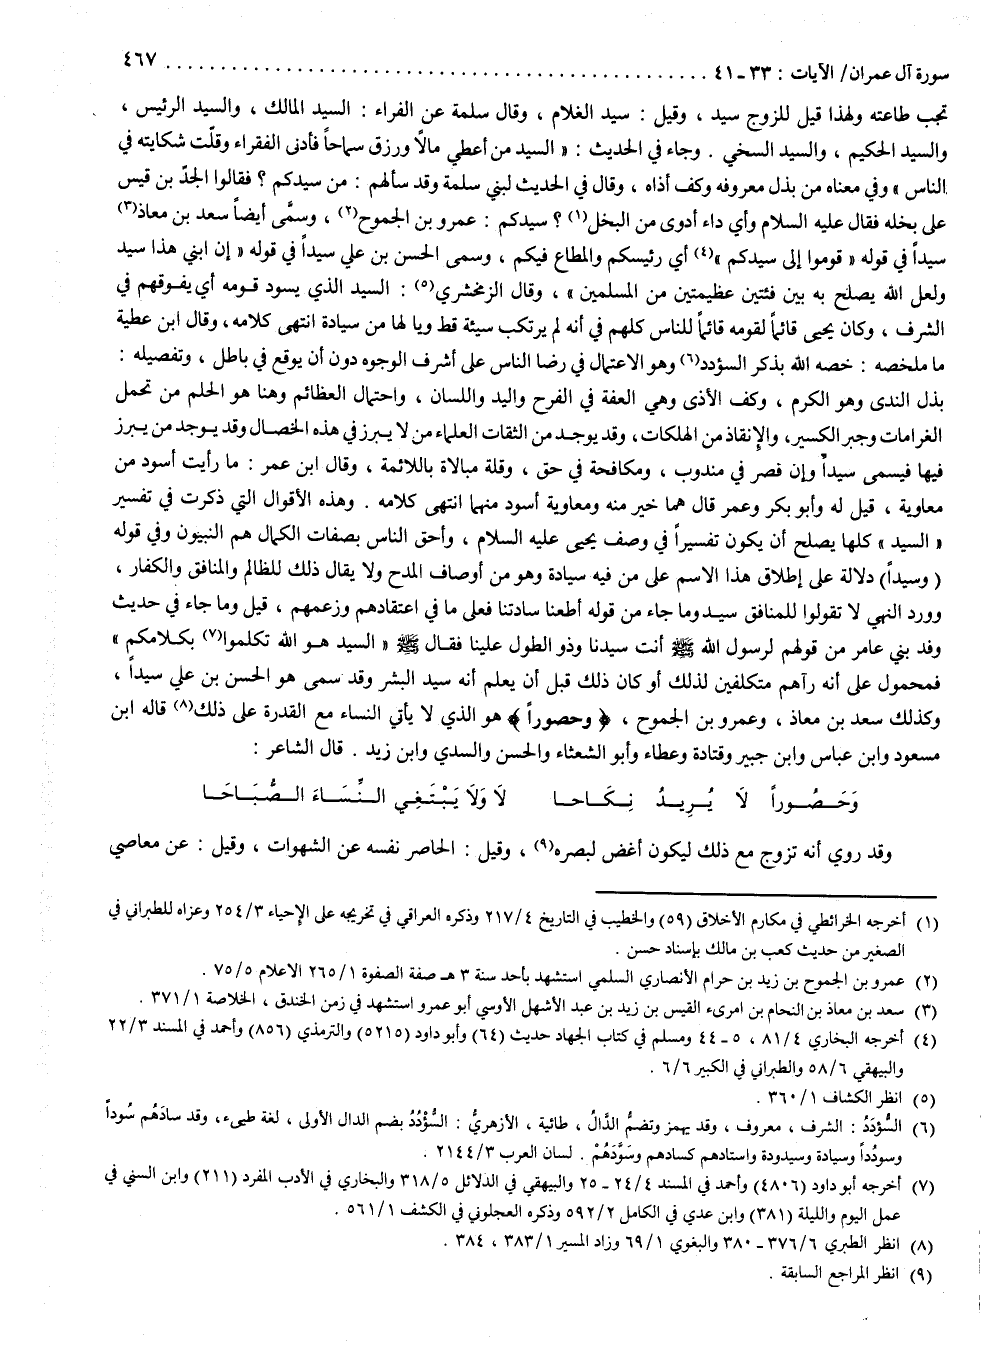 سورة آل عمران/ الآيات : ٣٣ ـ ٤١ ................................................ ٤٦٧
تجب طاعته ولهذا قيل للزوج سيد ، وقيل : سيد الغلام ، وقال سلمة عن الفراء : السيد المالك ، والسيد الرئيس ،
والسيد الحكيم ، والسيد السخي . وجاء في الحديث : « السيد من أعطي مالًا ورزق سماحاً فأدنى الفقراء وقلّت شكايته في
الناس » وفي معناه من بذل معروفه وكف أذاه ، وقال في الحديث لبني سلمة وقد سألهم : من سيدكم ؟ فقالوا الجدّ بن قيس
على بخله فقال عليه السلام وأي داء أدوى من البخل(١) ؟ سيدكم : عمرو بن الجموح(٢) ، وسمَّى أيضاً سعد بن معاذ(٣)
سيداً في قوله « قوموا إلى سيدكم »(٤) أي رئيسكم والمطاع فيكم ، وسمى الحسن بن علي سيداً في قوله « إن ابني هذا سيد
ولعل الله يصلح به بين فئتين عظيمتين من المسلمين » ، وقال الزمخشري(٥) : السيد الذي يسود قومه أي يفوقهم في
الشرف ، وكان يحيى قائماً لقومه قائماً للناس كلهم في أنه لم يرتكب سيئة قط ويا لها من سيادة انتهى كلامه، وقال ابن عطية
ما ملخصه : خصه الله بذكر السؤدد(٦) وهو الاعتمال في رضا الناس على أشرف الوجوه دون أن يوقع في باطل ، وتفصيله :
بذل الندى وهو الكرم ، وكف الأذى وهي العفة في الفرج واليد واللسان ، واحتمال العظائم وهنا هو الحلم من تحمل
الغرامات وجبر الكسير، والإنقاذ من الهلكات، وقد يوجد من الثقات العلماء من لا يبرز في هذه الخصال وقد يوجد من يبرز
فيها فيسمى سيداً وإن قصر في مندوب ، ومكافحة في حق ، وقلة مبالاة باللائمة ، وقال ابن عمر : ما رأيت أسود من
معاوية ، قيل له وأبو بكر وعمر قال هما خير منه ومعاوية أسود منهما انتهى كلامه . وهذه الأقوال التي ذكرت في تفسير
« السيد » كلها يصلح أن يكون تفسيراً في وصف يحيى عليه السلام ، وأحق الناس بصفات الكمال هم النبيون وفي قوله
( وسيداً) دلالة على إطلاق هذا الاسم على من فيه سيادة وهو من أوصاف المدح ولا يقال ذلك للظالم والمنافق والكفار ،
وورد النهي لا تقولوا للمنافق سيد وما جاء من قوله أطعنا سادتنا فعلى ما في اعتقادهم وزعمهم ، قيل وما جاء في حديث
وفد بني عامر من قولهم لرسول الله ﷺ أنت سيدنا وذو الطول علينا فقال ﷺ « السيد هو الله تكلموا(٧) بكلامكم »
فمحمول على أنه رآهم متكلفين لذلك أو كان ذلك قبل أن يعلم أنه سيد البشر وقد سمى هو الحسن بن علي سيداً ،
وكذلك سعد بن معاذ ، وعمرو بن الجموح ، ﴿ وحصوراً ﴾ هو الذي لا يأتي النساء مع القدرة على ذلك(٨) قاله ابن
مسعود وابن عباس وابن جبير وقتادة وعطاء وأبو الشعثاء والحسن والسدي وابن زيد . قال الشاعر :
وَحَصُوراً لَا يُرِيدُ نِكَاحا لَا وَلَا يَبْتَغِي النِّسَاءَ الصُّبَاحَا
وقد روي أنه تزوج مع ذلك ليكون أغض لبصره(٩) ، وقيل : الحاصر نفسه عن الشهوات ، وقيل : عن معاصي
(١) أخرجه الخرائطي في مكارم الأخلاق (٥٩) والخطيب في التاريخ ٢١٧/٤ وذكره العراقي في تخريجه على الإحياء ٢٥٤/٣ وعزاه للطبراني في
الصغير من حديث كعب بن مالك بإسناد حسن .
(٢) عمرو بن الجموح بن زيد بن حرام الأنصاري السلمي استشهد بأحد سنة ٣ هـ صفة الصفوة ٢٦٥/١ الاعلام ٧٥/٥ .
(٣) سعد بن معاذ بن النحام بن امرىء القيس بن زيد بن عبد الأشهل الأوسي أبو عمرو استشهد في زمن الخندق ، الخلاصة ٣٧١/١ .
(٤) أخرجه البخاري ٨١/٤ ، ٥ ـ ٤٤ ومسلم في كتاب الجهاد حديث (٦٤) وأبو داود (٥٢١٥) والترمذي (٨٥٦) وأحمد في المسند ٢٢/٣
والبيهقي ٥٨/٦ والطبراني في الكبير ٦/٦ .
(٥) انظر الكشاف ٣٦٠/١ .
(٦) السُّؤدَدُ : الشرف ، معروف ، وقد يهمز وتضمُّ الدَّالُ ، طائية ، الأزهريُّ : السُّؤْدُدُ بضم الدال الأولى ، لغة طيىء، وقد سادَهُم سُوداً
وسودُداً وسيادة وسيدودة واستادهم كسادهم وسَوَّدَهُمْ . لسان العرب ٢١٤٤/٣ .
(٧) أخرجه أبو داود (٤٨٠٦) وأحمد في المسند ٢٤/٤ ـ ٢٥ والبيهقي في الدلائل ٣١٨/٥ والبخاري في الأدب المفرد (٢١١) وابن السني في
عمل اليوم والليلة (٣٨١) وابن عدي في الكامل ٥٩٢/٢ وذكره العجلوني في الكشف ٥٦١/١ .
(٨) انظر الطبري ٣٧٦/٦ ـ ٣٨٠ والبغوي ٦٩/١ وزاد المسير ٣٨٣/١ ، ٣٨٤ .
(٩) انظر المراجع السابقة .